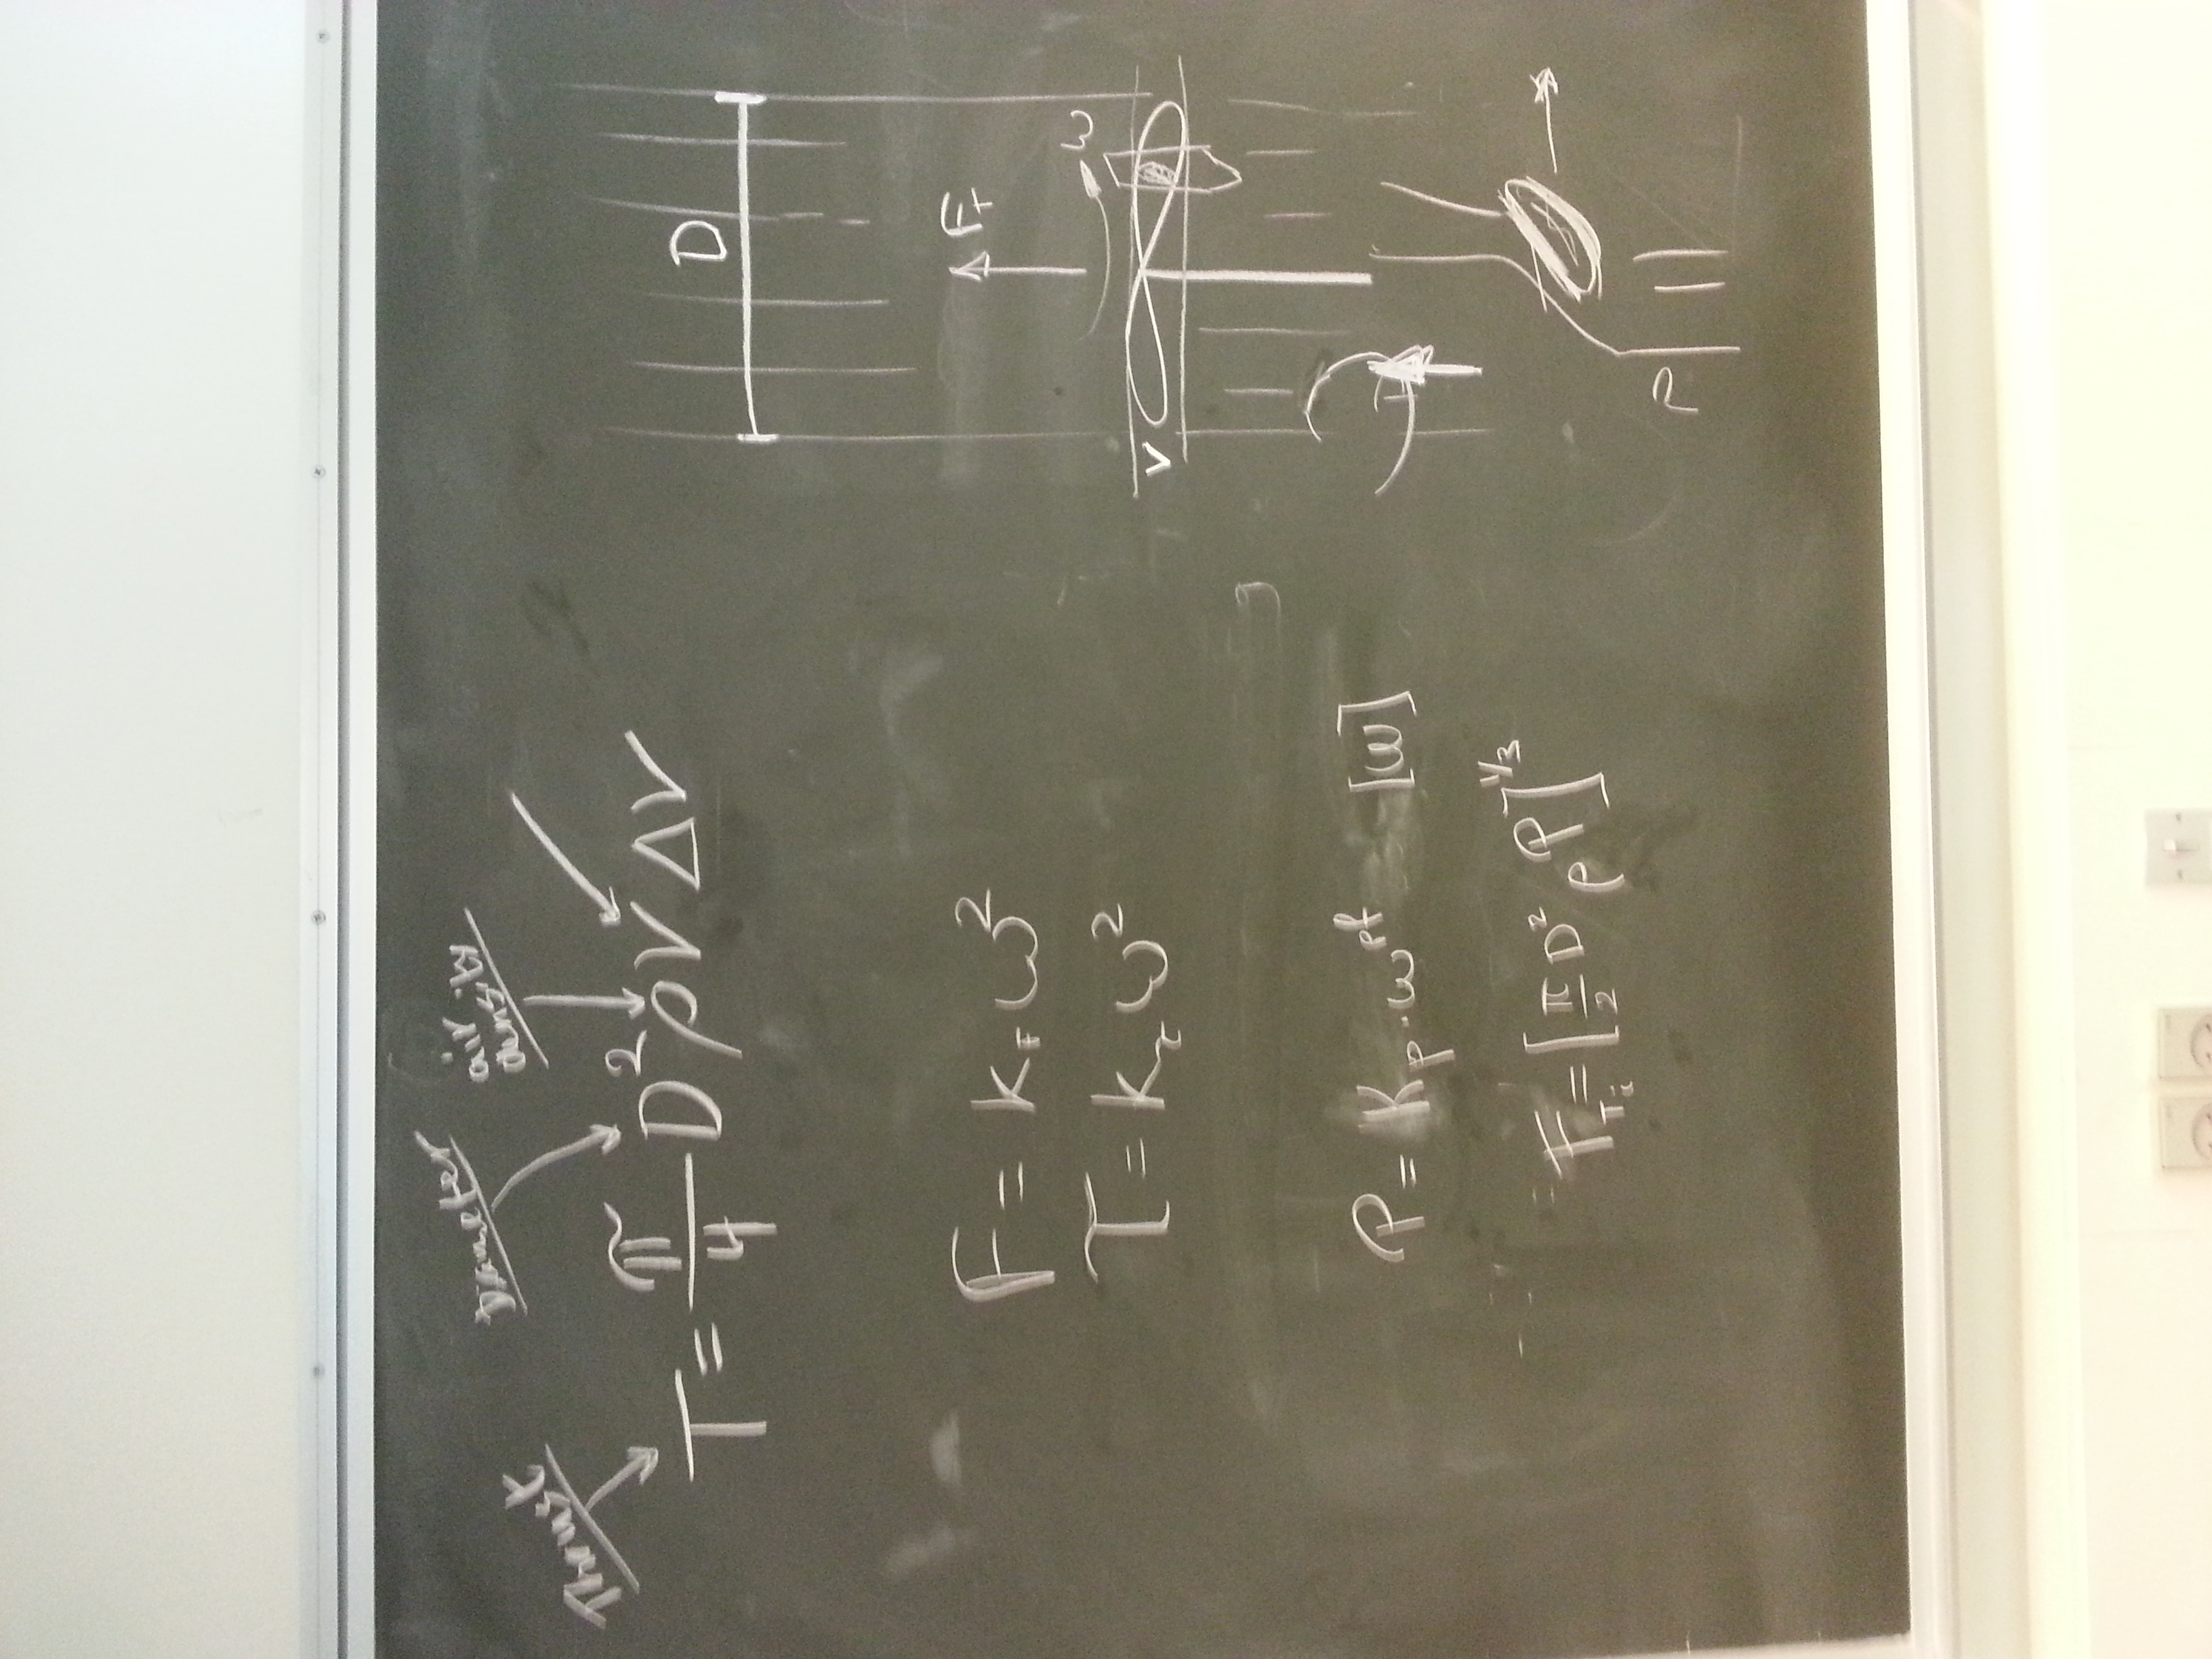 Thrust
Diameter
air
density
T = π/4 D² ρ V Δ V
D
F = k_F ω²
F_T
τ = k_τ ω²
ω
V
P = K_p · ω^pf [W]
F_Ti = [π/2 D² ρ P]^1/3